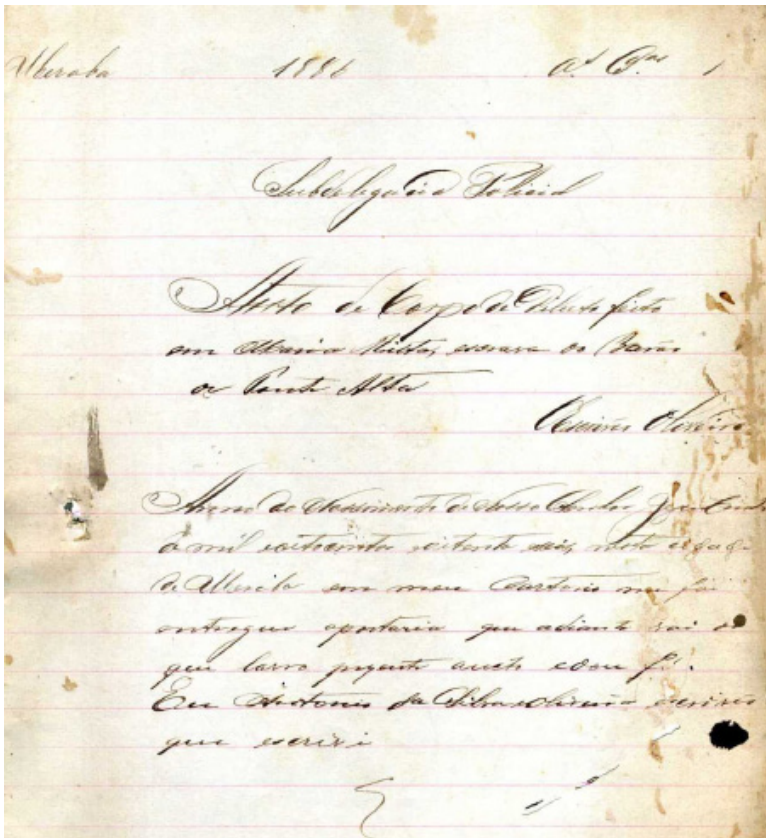 Uberaba 1886 1
Subdelegacia Policial
Aucto de Corpo de Delicto feito
em Maria Mista, escrava do Barão
de Ponte Alta
Escrivão Oliveira
Anno do Nascimento de Nosso Senhor Jesus
de mil oitocentos oitenta seis, nesta
de Uberaba em meu Cartorio me foi
entregue aportaria que adiante vai do
que lavro presente aucto edou fé.
Eu Antonio da Silva Oliveira escrivão
que escrivi